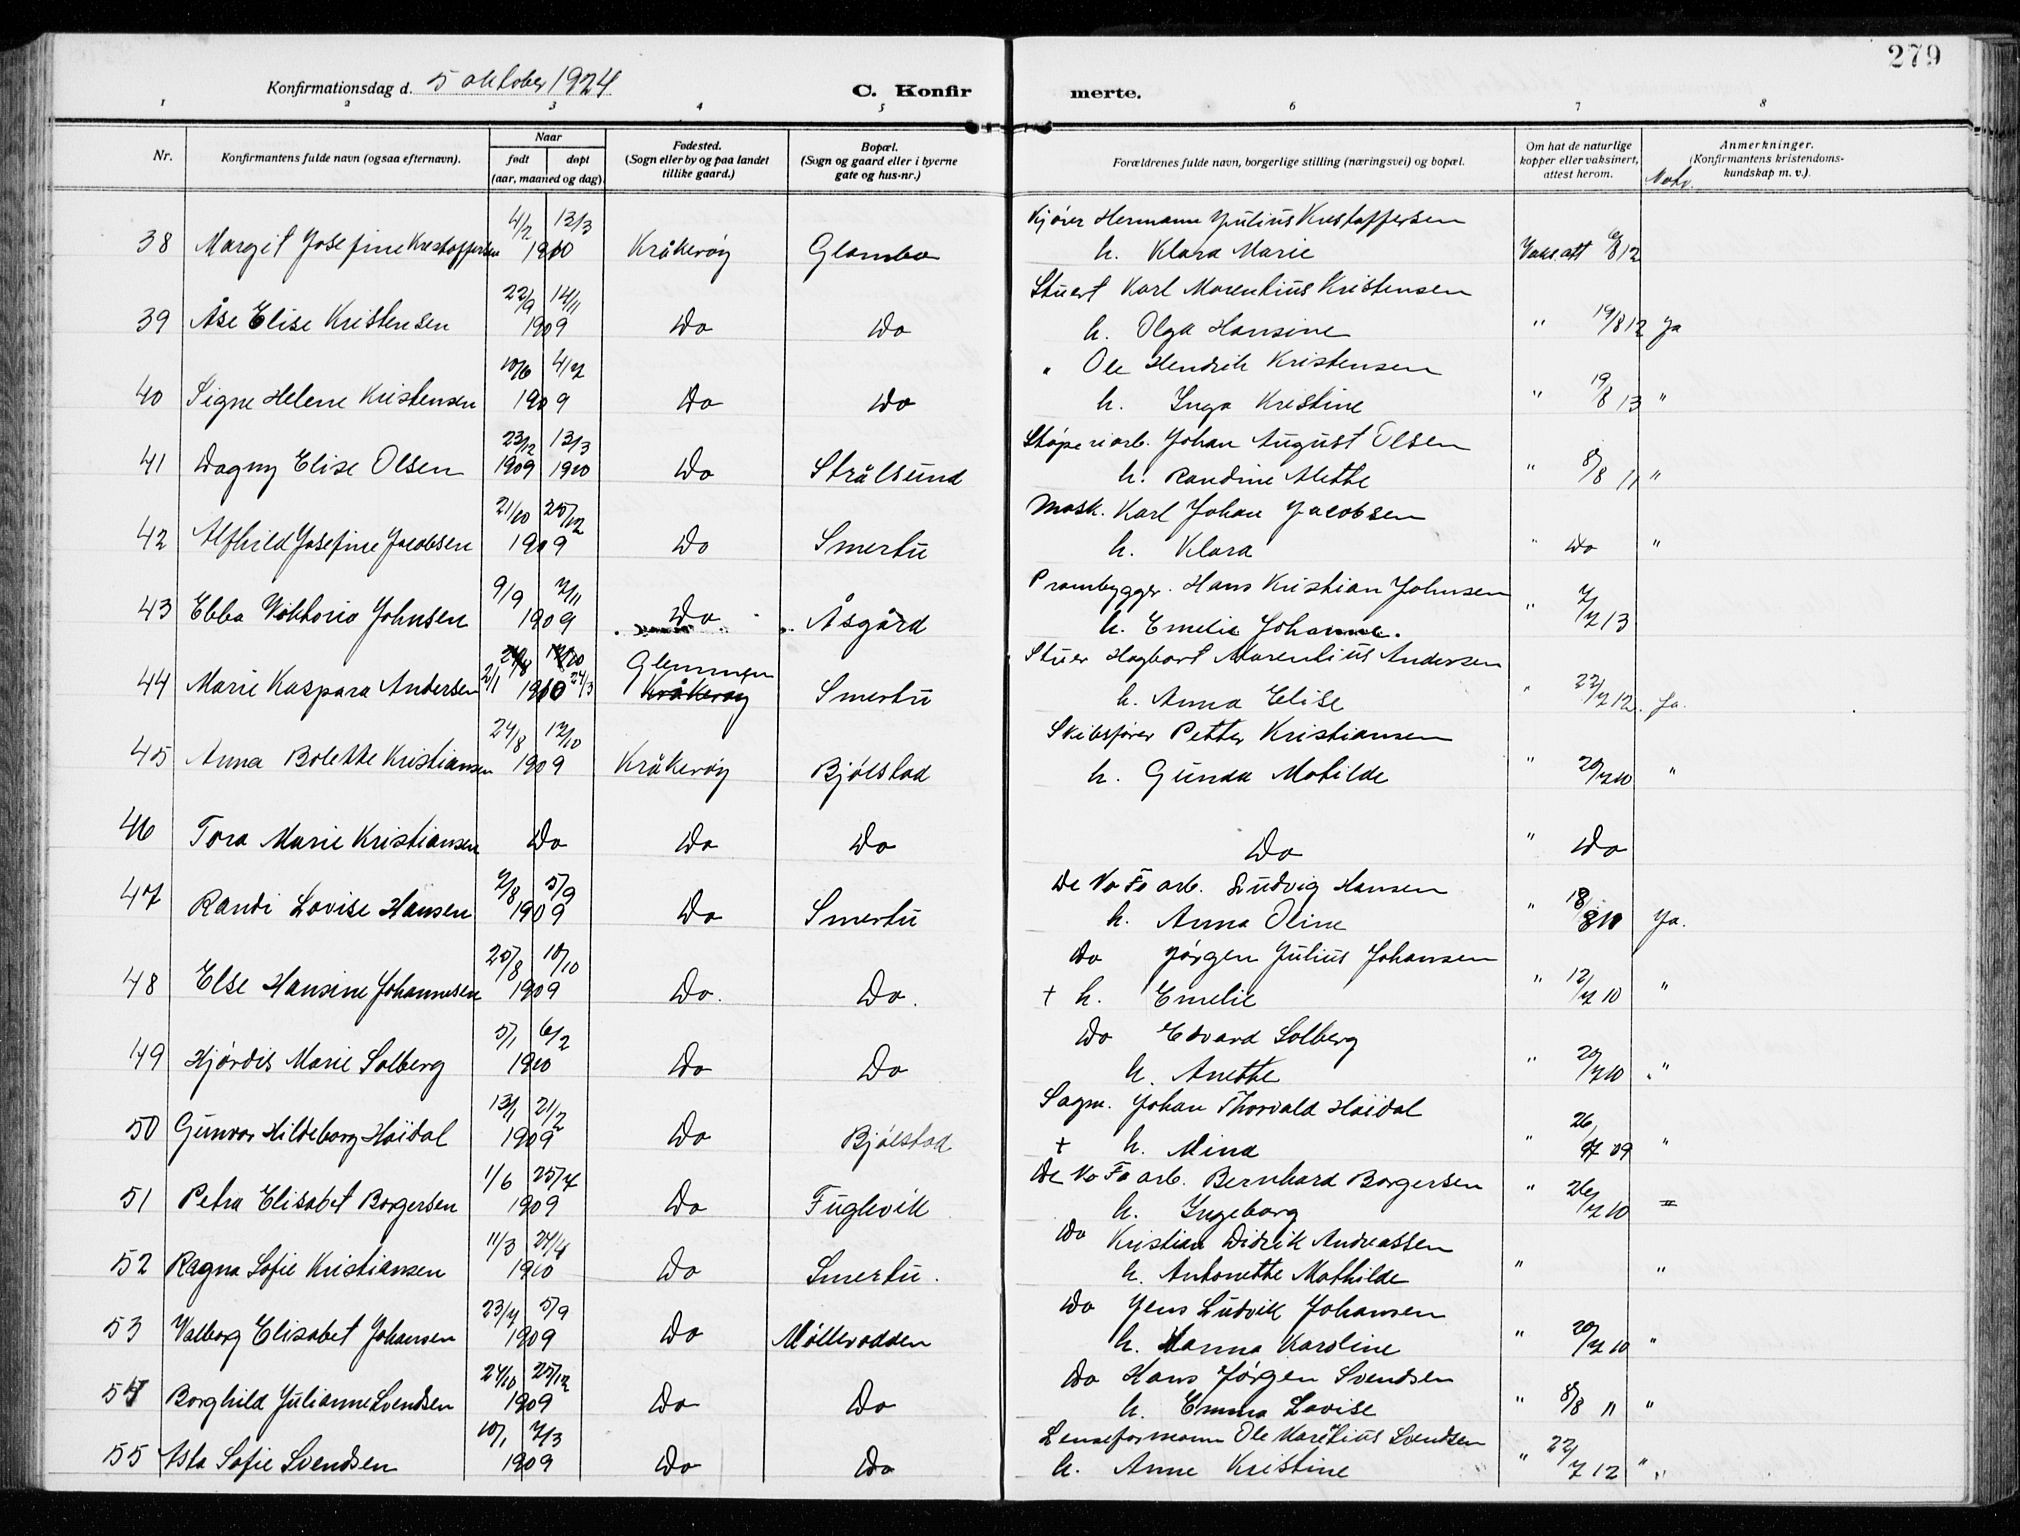 279
Konfirmationsdag d. 5 oktober 1924
C. Konfirmerte.
1 2 3 4 5 6 7 8
Nr.
Konfirmantens fulde navn (ogsaa efternavn).
Naar
født døpt
(aar, maaned og dag).
Fødested.
(Sogn eller by og paa landet
tillike gaard.)
Bopæl.
(Sogn og gaard eller i byerne
gate og hus-nr.)
Forældrenes fulde navn, borgerlige stilling (næringsvei) og bopæl.
Om hat de naturlige
kopper eller vaksinert,
attest herom.
Anmerkninger.
(Konfirmantens kristendoms-
kundskap m. v.).
4/2 13/3 Hermann Julius Kristoffersen
38 Margit Josefine Kristoffersen 1910 Kråkerøy Glombo h. Klara Marie Vaks. att 6/8 12
22/9 14/11 Stuert Karl Marentius Kristensen
39 Åse Elise Kristensen 1909 Do Do h. Olga Hansine " 19/8 12 Ja
10/6 4/7 " Ole Hendrik Kristensen
40 Signe Helene Kristensen 1909 Do Do h. Inga Kristine " 19/8 13 "
23/12 13/3 Støperiarb. Johan August Olsen
41 Dagny Elise Olsen 1909 1910 Do Strålsund h. Randine Alette " 8/8 11 "
21/10 25/12 Mask. Karl Johan Jacobsen
42 Alfhild Josefine Jacobsen 1909 Do Smertu h. Klara " Do "
9/9 7/11 Prambygger. Hans Kristian Johnsen
43 Ebba Viktoria Johnsen 1909 Do Åsgård h. Emelie Johanne. " 7/7 13
Glemmen Stuer Hagbart Marentius Andersen
44 Marie Kaspara Andersen 21/1 1910 24/3 Kråkerøy Smertu h. Anna Elise " 22/7 12. Ja.
24/8 12/10 Skibsfører Petter Kristiansen
45 Anna Bolette Kristiansen 1909 Kråkerøy Bjølstad h. Gunda Matilde " 20/7 10 "
46 Tora Marie Kristiansen Do Do Do Do " Do
2/8 5/9 De No Fa arb. Ludvig Hansen
47 Randi Lovise Hansen 1909 Do Smertu h. Anna Oline " 18/8 10 Ja.
25/8 10/10 Do Jørgen Julius Johansen
48 Else Hansine Johannesen 1909 Do. Do. + h. Emelie " 12/7 10 "
5/1 6/2 Do Edvard Solberg
49 Hjørdis Marie Solberg 1910 Do Do h. Anette " 20/7 10 "
13/1 21/2 Sagm. Johan Thorvald Høidal
50 Gunvor Hildeborg Høidal 1909 Do Bjølstad + h. Mina " 26/7 09 "
1/6 25/7 De No Fa arb. Bernhard Borgersen
51 Petra Elisabet Borgersen 1909 Do Fuglevik h. Ingeborg " 26/7 10 "
11/3 24/4 Do Kristian Didrik Andreassen
52 Ragna Sofie Kristiansen 1910 Do Smertu. h. Antonette Mathilde " "
23/7 5/9 Do Jens Ludvik Johansen
53 Valborg Elisabet Johansen 1909 Do Møllerodden h. Hanna Karoline " 20/7 10 "
24/10 25/12 Do Hans Jørgen Svendsen
54 Borghild Julianne Svendsen 1909 Do Do h. Emma Lovise " 8/8 11 "
10/1 7/3 Lenseformann Ole Maretius Svendsen
55 Asta Sofie Svendsen 1909 Do Do h. Anne Kristine " 22/7 12 "